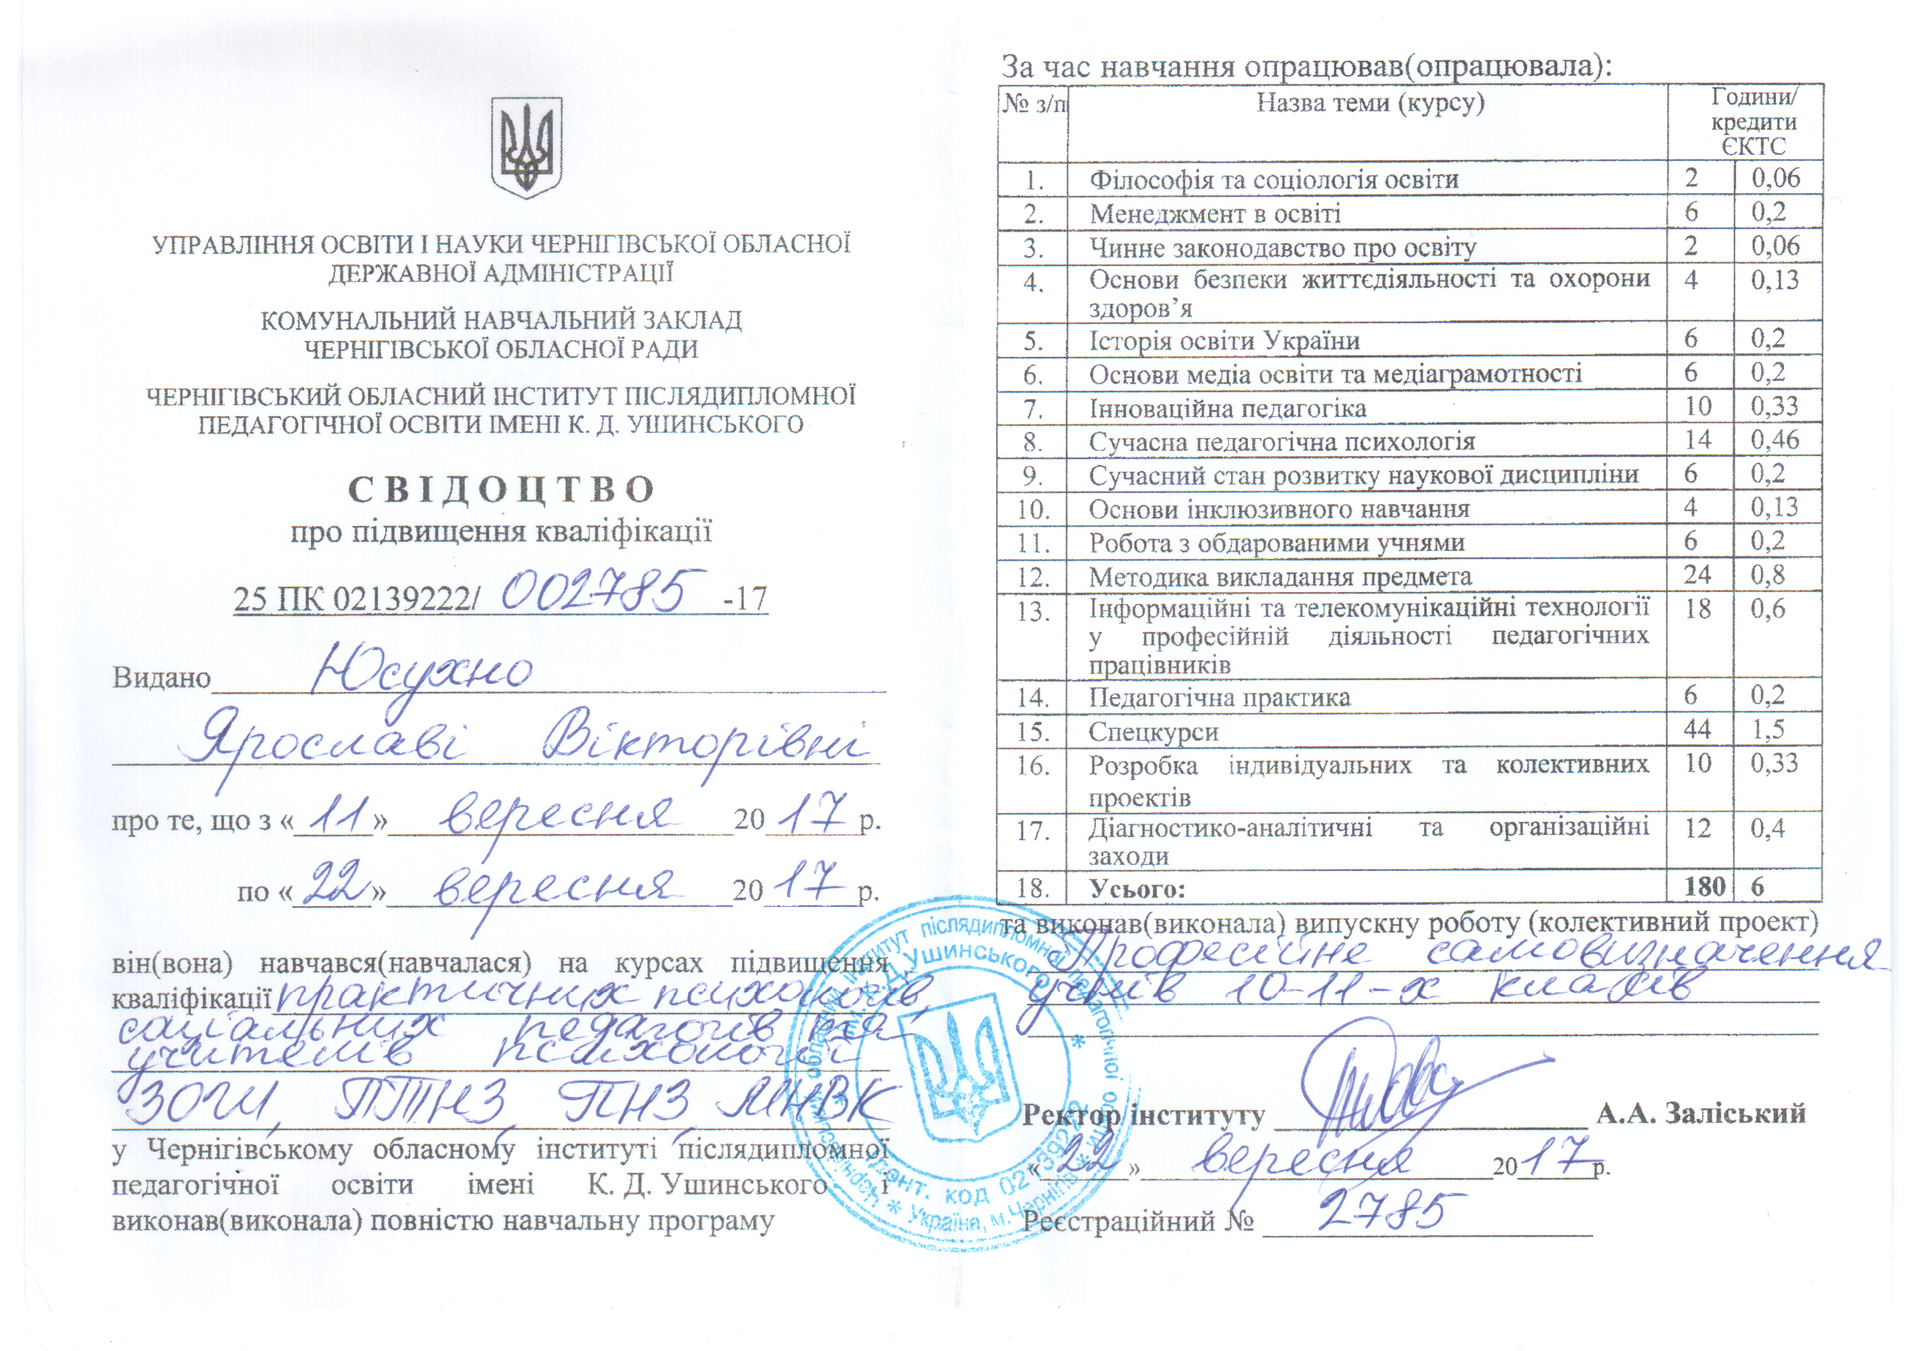 УПРАВЛІННЯ ОСВІТИ І НАУКИ ЧЕРНІГІВСЬКОЇ ОБЛАСНОЇ
ДЕРЖАВНОЇ АДМІНІСТРАЦІЇ
КОМУНАЛЬНИЙ НАВЧАЛЬНИЙ ЗАКЛАД
ЧЕРНІГІВСЬКОЇ ОБЛАСНОЇ РАДИ
ЧЕРНІГІВСЬКИЙ ОБЛАСНИЙ ІНСТИТУТ ПІСЛЯДИПЛОМНОЇ
ПЕДАГОГІЧНОЇ ОСВІТИ ІМЕНІ К. Д. УШИНСЬКОГО
СВІДОЦТВО
про підвищення кваліфікації
25 ПК 02139222/ 002785 -17
Видано Юсухно
Ярославі Вікторівні
про те, що з «11» вересня 2017 р.
по «22» вересня 2017 р.
він(вона) навчався(навчалася) на курсах підвищення
кваліфікації практичних психологів,
соціальних педагогів та
учителів психології
ЗОШ, ПТНЗ, ПНЗ, МНВК
у Чернігівському обласному інституті післядипломної
педагогічної освіти імені К. Д. Ушинського і
виконав(виконала) повністю навчальну програму
За час навчання опрацював(опрацювала):
№ з/п Назва теми (курсу) Години/
кредити
ЄКТС
1. Філософія та соціологія освіти 2 0,06
2. Менеджмент в освіті 6 0,2
3. Чинне законодавство про освіту 2 0,06
4. Основи безпеки життєдіяльності та охорони 4 0,13
здоров’я
5. Історія освіти України 6 0,2
6. Основи медіа освіти та медіаграмотності 6 0,2
7. Інноваційна педагогіка 10 0,33
8. Сучасна педагогічна психологія 14 0,46
9. Сучасний стан розвитку наукової дисципліни 6 0,2
10. Основи інклюзивного навчання 4 0,13
11. Робота з обдарованими учнями 6 0,2
12. Методика викладання предмета 24 0,8
13. Інформаційні та телекомунікаційні технології 18 0,6
у професійній діяльності педагогічних
працівників
14. Педагогічна практика 6 0,2
15. Спецкурси 44 1,5
16. Розробка індивідуальних та колективних 10 0,33
проектів
17. Діагностико-аналітичні та організаційні 12 0,4
заходи
18. Усього: 180 6
та виконав(виконала) випускну роботу (колективний проект)
Професійне самовизначення
учнів 10-11-х класів
Ректор інституту А.А. Заліський
«22» вересня 2017 р.
Реєстраційний № 2785
обласний інститут післядипломної педагогічної
ім. К.Д. Ушинського
Ідент. код 02139222
Україна, м. Чернігів